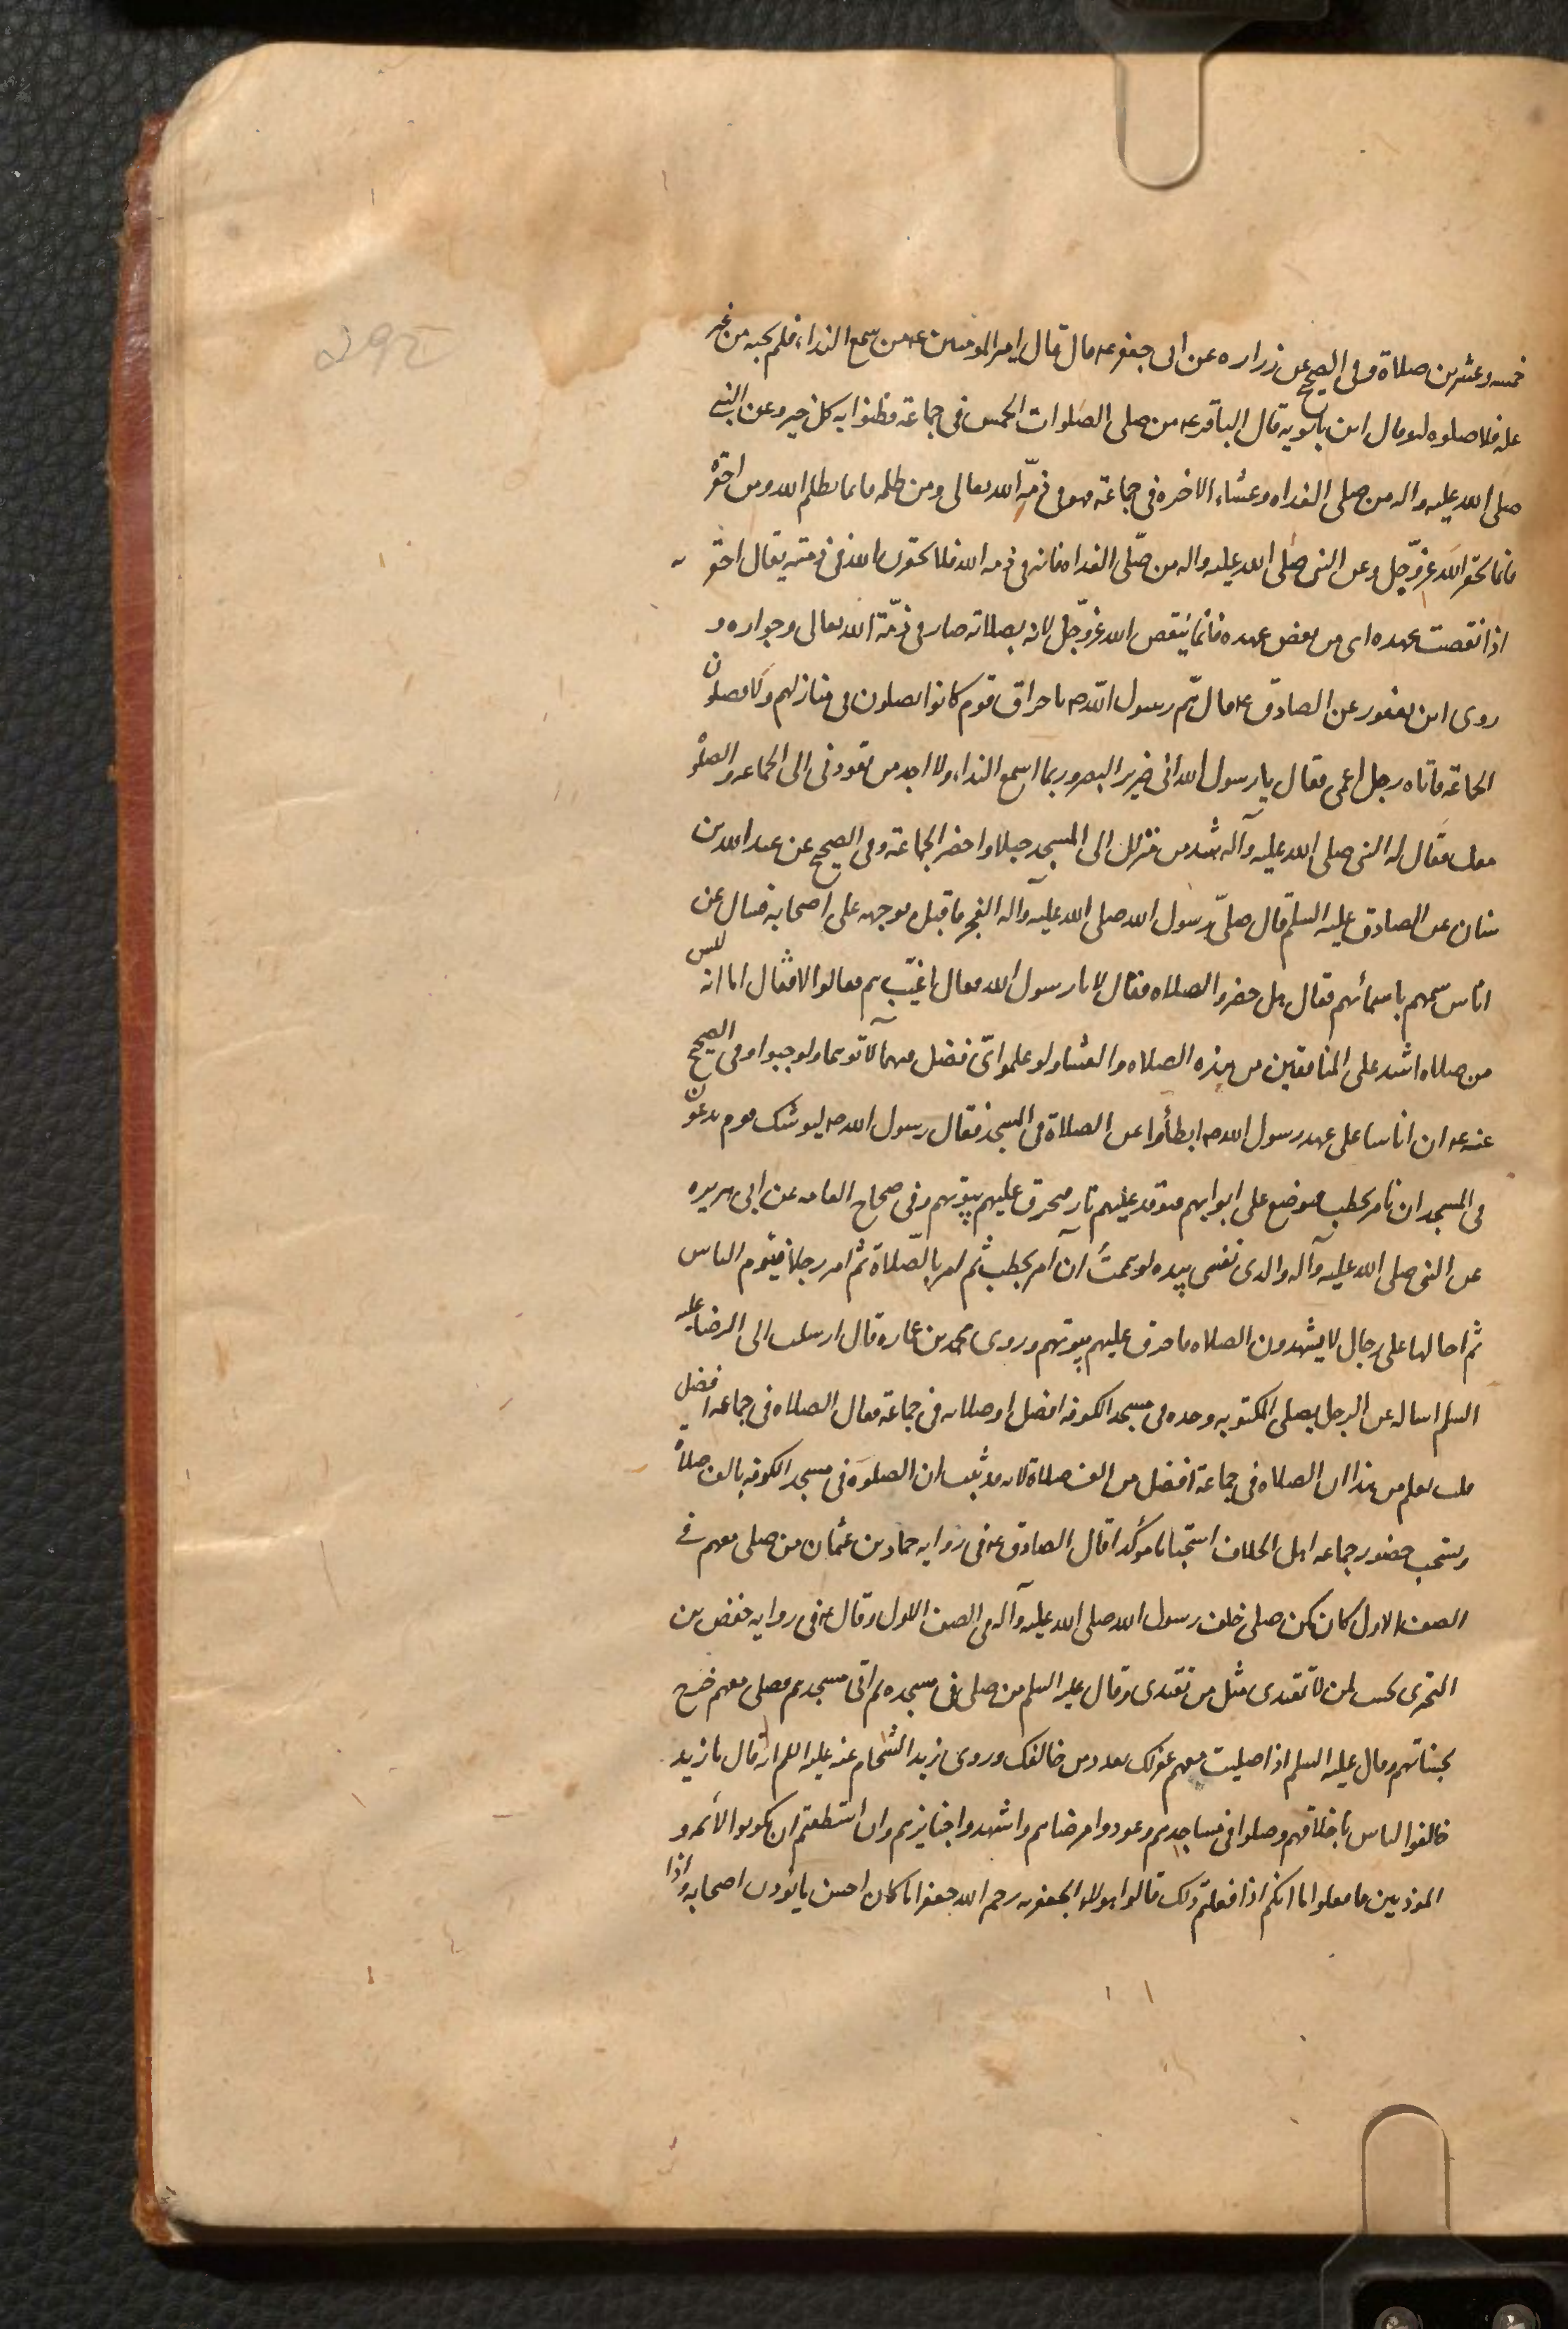 خمسه وعشرين صلاة وفى الصحيح عن زراره عن ابى جعفر عه قال قال امير المومنين عه من سمع النداء فلم يجبه من غير
عله فلا صلوه له وقال ابن بابويه قال الباقر عه من صلى الصلوات الخمس فى جماعة فظنوا به كل خير وعن النبى
صلى الله عليه واله من صلى الغداه وعشاء الاخره فى جماعة فهو فى ذمّة الله تعالى ومن ظلمه فانما يظلم الله ومن احقره
فانما يحقر الله عزّ وجّل وعن النبى صلى الله عليه واله من صّلى الغداه فانه فى ذمه الله فلا يحقرن الله فى ذمته يقال احقر
اذا نقصت عهده اى من نقض عهده فانما ينقص الله عزّ وجّل لانه بصلاته صار فى ذمّة الله تعالى وجواره و
روى ابن يعفور عن الصادق عه قال همّ رسول الله صه باحراق قوم كانوا يصلون فى منازلهم ولا يصلون
الجماعة فاتاه رجل اعمى فقال يا رسول الله انى ضرير البصر وربما اسمع النداء ولا اجد من يقودنى الى الجماعه والصلوه
معك فقال له النبى صلى الله عليه وآله شد من منزلك الى المسجد حبلا واحضر الجماعة وفى الصحيح عن عبد الله بن
سنان عن الصادق عليه السلم قال صلىّ رسول الله صلى الله عليه وآله الفجر فاقبل بوجهه على اصحابه فسال عن
اناس سمهم باسمائهم فقال هل حضروا الصلاه فقال لا يا رسول الله فقال اغيّب هم فقالوا لا فقال اما انه ليس
من صلاه اشد على المنافقين من هذه الصلاه والعشاء ولو علموا اىّ فضل فيهما لاتوهما ولو حبوا وفى الصحيح
عنه عه ان اناسا على عهد رسول الله صه ابطأوا عن الصلاة فى المسجد فقال رسول الله صه ليوشك قوم يدعون
فى المسجد ان نامر بحطب فيوضع على ابوابهم فتوقد عليهم نار فيحرق عليهم بيوتهم وفى صحاح العامه عن ابى هريره
عن النبى صلى الله عليه وآله والذى نفسى بيده لو هممتُ ان آمر بحطب ثم امر بالصّلاة ثم امر رجلا فيوم الناس
ثم احالها على رجال لا يشهدون الصلاه فاحرق عليهم بيوتهم وروى محمد بن عماره قال ارسلت الى الرضا عليه
السلم اساله عن الرجل يصلى المكتوبه وحده فى مسجد الكوفه افضل او صلاته فى جماعة فقال الصلاه فى جماعه افضل
قلت يعلم من هذا ان الصلاه فى جماعة افضل من الف صلاة لانه قد ثبت ان الصلوة فى مسجد الكوفه بالف صلاة
ويستحب حضور جماعه اهل الخلاف استحبابا مؤكدا قال الصادق عه فى روايه حماد بن عثمان من صلى معهم فى
الصف الاول كان كمن صلى خلف رسول الله صلى الله عليه وآله فى الصف الاول وقال عه فى روايه حفص بن
البخترى يحسب لمن لا تقتدى مثل من تقتدى وقال عليه السلم من صلى فى مسجده ثم اتى مسجدهم فصلى معهم خرج
بحسناتهم وقال عليه السلم اذا صليت معهم غفر لك بعدد من خالفك وروى زيد الشحام عنه عليه السلم انه قال يا زيد
خالقوا الناس باخلاقهم وصلوا فى مساجدهم وعودوا مرضاهم واشهدوا جنايزهم وان استطعتم ان تكونوا الائمه و
الموذنين فافعلوا فانكم اذا فعلتم ذلك قالوا هولاء الجعفريه رحم الله جعفرا ما كان احسن ما يؤدب اصحابه واذا